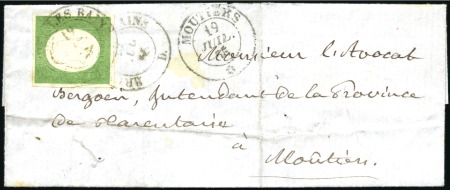 LES BAINS
MOUTIERS
19
JUIL.
Monsieur l'Avocat
Bergoen, Intendant de la Province
de Tarentaise
à
Moutiers